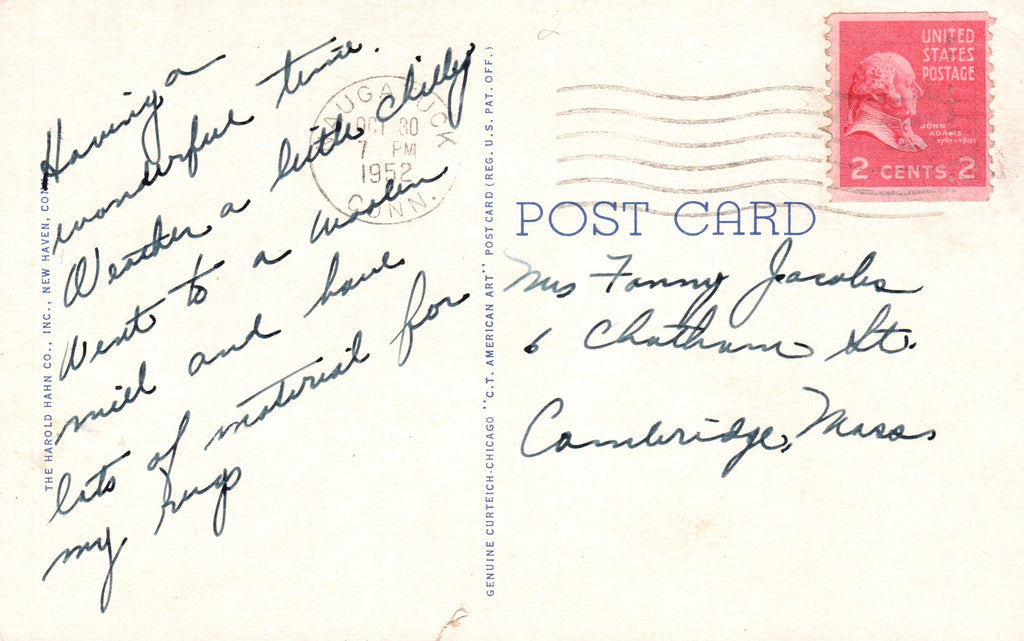 Having a
wonderful time.
Weather a little chilly
Went to a woolen
mill and have
lots of material for
my rugs
THE HAROLD HAHN CO., INC., NEW HAVEN, CONN
NAUGATUCK
OCT 30
7 PM
1952
CONN.
GENUINE CURTEICH-CHICAGO "C.T. AMERICAN ART" POST CARD (REG. U.S. PAT. OFF.)
UNITED
STATES
POSTAGE
JOHN
ADAMS
1797-1801
2 CENTS 2
POST CARD
Mrs Fanny Jacobs
6 Chatham St.
Cambridge, Mass.